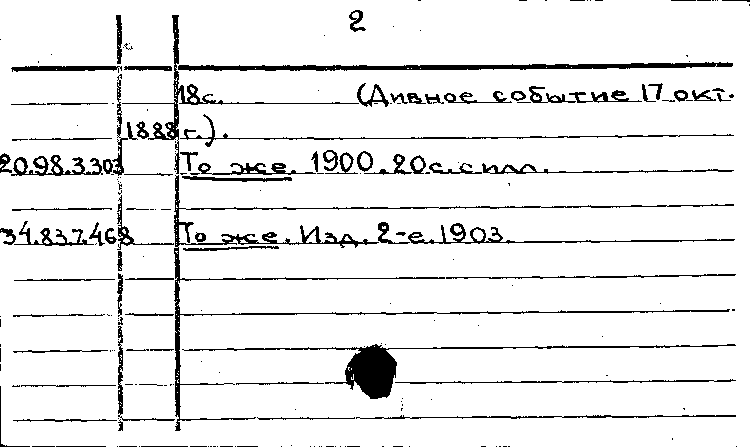 2
18с. (Дивное событие 17 окт.
1888 г.).
20.98.3.303 То же. 1900. 20с. с илл.
34.837.468 То же. Изд. 2-е. 1903.